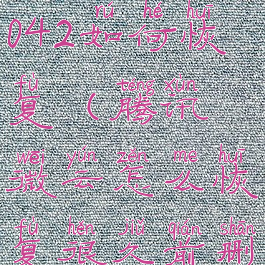 rú hé huī
042如何恢
fù téng xùn
复（腾讯
wēi yún zěn me huī
微云怎么恢
fù hěn jiǔ qián shān
复很久前删